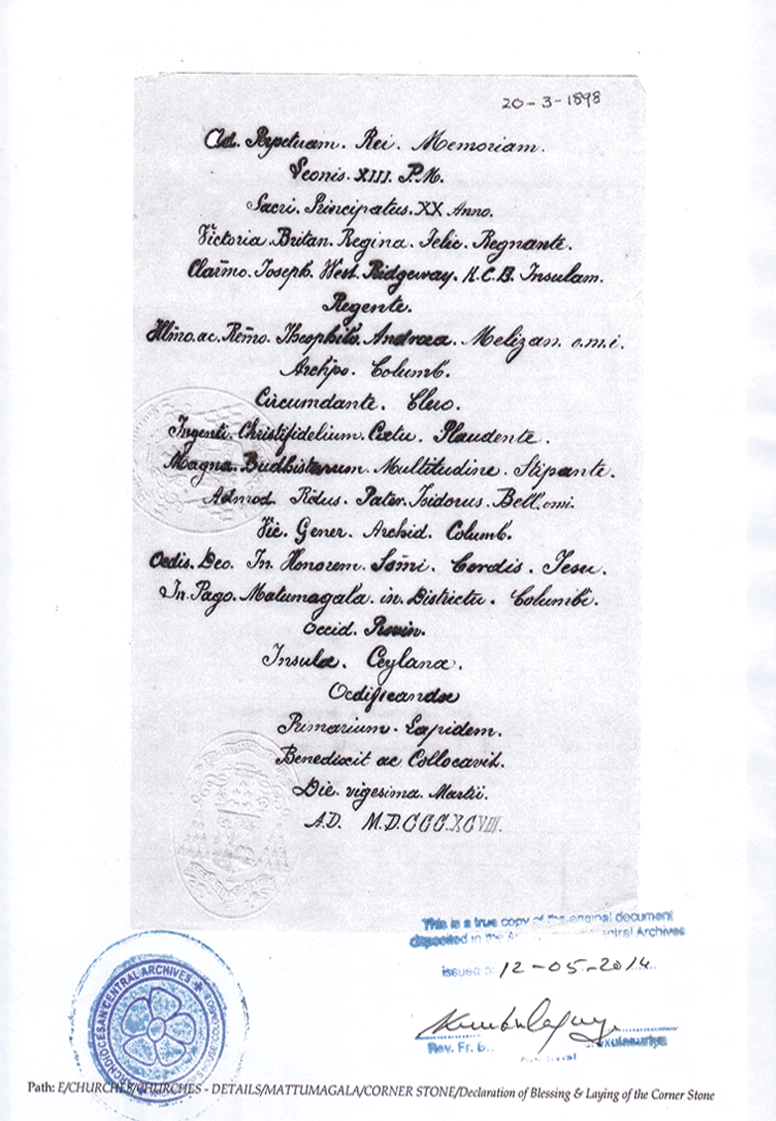 20-3-1898
Ad. Perpetuam. Rei. Memoriam.
Leonis. XIII. P.M.
Sacri. Principatus. XX Anno.
Victoria. Britan. Regina. Felic. Regnante.
Clar̄mo. Joseph. West. Ridgeway. K.C.B. Insulam.
Regente.
Illm̄o. ac. Rem̄o. Theophilo. Andraea. Melizan. o.m.i.
Archpo. Columb.
Circumdante. Clero.
Ingenti. Christifidelium. Cœtu. Plaudente.
Magna. Budhistarum. Multitudine. Stipante.
Admod. Rdus. Pater. Isidorus. Bell. omi.
Vic. Gener. Archid. Columb.
Oedis. Deo. In. Honorem. Sm̄i. Cordis. Jesu.
In. Pago. Matumagala. in. Districtu. Columbi.
Occid. Provin.
Insulæ. Ceylanæ.
Oedificandæ
Primarium. Lapidem.
Benedixit ac Collocavit.
Die. vigesima. Martii.
A.D. M.D.CCC.XCVIII.
This is a true copy of the original document
deposited in the Central Archives
issued 12-05-2014
Rev. Fr.
ARCHDIOCESAN CENTRAL ARCHIVES
Path: E/CHURCHES/CHURCHES - DETAILS/MATTUMAGALA/CORNER STONE/Declaration of Blessing & Laying of the Corner Stone